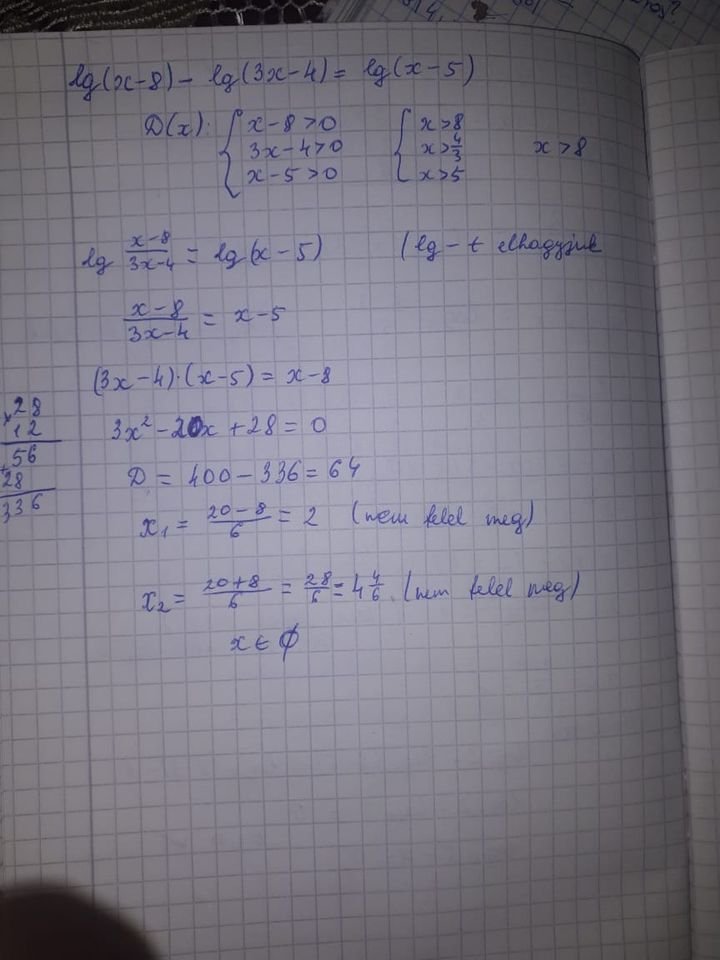 lg(x-8) - lg(3x-4) = lg(x-5)
D(x): { x-8>0 { x>8
3x-4>0 x>4/3 x>8
x-5>0 x>5
lg (x-8)/(3x-4) = lg(x-5) (lg-t elhagyjuk
(x-8)/(3x-4) = x-5
(3x-4)·(x-5) = x-8
3x²-20x+28 = 0
D = 400-336 = 64
x₁ = (20-8)/6 = 2 (nem felel meg)
x₂ = (20+8)/6 = 28/6 = 4 4/6 (nem felel meg)
x ∈ ∅
×28
12
+56
28
336